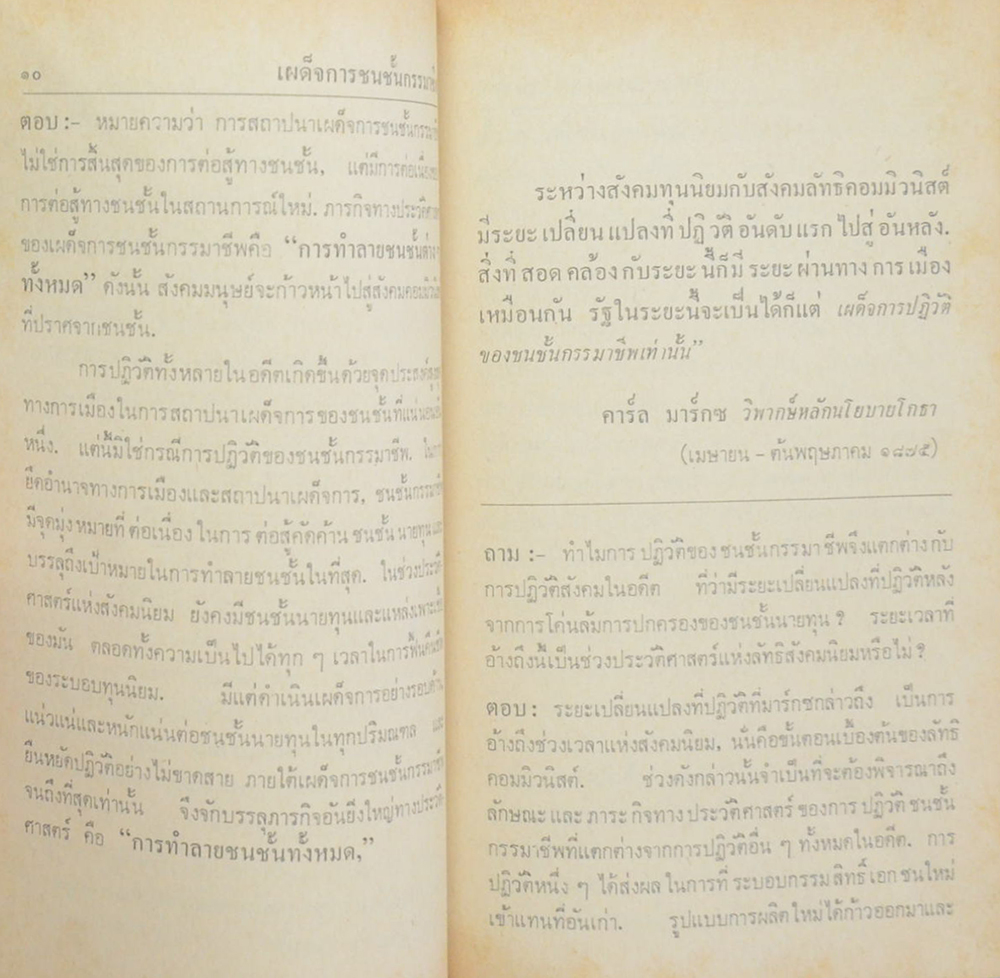 ๑๐ เผด็จการชนชั้นกรรมาชีพ
ตอบ :- หมายความว่า การสถาปนาเผด็จการชนชั้นกรรมาชีพ
ไม่ใช่การสิ้นสุดของการต่อสู้ทางชนชั้น, แต่มีการต่อเนื่อง
การต่อสู้ทางชนชั้นในสถานการณ์ใหม่. ภารกิจทางประวัติศาสตร์
ของเผด็จการชนชั้นกรรมาชีพคือ “การทำลายชนชั้นต่างๆ
ทั้งหมด” ดังนั้น สังคมมนุษย์จะก้าวหน้าไปสู่สังคมคอมมิวนิสต์
ที่ปราศจากชนชั้น.
การปฏิวัติทั้งหลายในอดีตเกิดขึ้นด้วยจุดประสงค์
ทางการเมืองในการสถาปนาเผด็จการของชนชั้นที่แน่นอน
หนึ่ง. แต่นี้มิใช่กรณีการปฏิวัติของชนชั้นกรรมาชีพ. ในการ
ยึดอำนาจทางการเมืองและสถาปนาเผด็จการ, ชนชั้นกรรมาชีพ
มีจุดมุ่งหมายที่ต่อเนื่องในการต่อสู้คัดค้านชนชั้นนายทุน และ
บรรลุถึงเป้าหมายในการทำลายชนชั้นในที่สุด. ในช่วงประวัติ
ศาสตร์แห่งสังคมนิยม ยังคงมีชนชั้นนายทุนและแหล่งเพาะเชื้อ
ของมัน ตลอดทั้งความเป็นไปได้ทุก ๆ เวลาในการฟื้นคืนชีพ
ของระบอบทุนนิยม. มีแต่ดำเนินเผด็จการอย่างรอบด้าน
แน่วแน่และหนักแน่นต่อชนชั้นนายทุนในทุกปริมณฑล และ
ยืนหยัดปฏิวัติอย่างไม่ขาดสาย ภายใต้เผด็จการชนชั้นกรรมาชีพ
จนถึงที่สุดเท่านั้น จึงจักบรรลุภารกิจอันยิ่งใหญ่ทางประวัติ
ศาสตร์ คือ “การทำลายชนชั้นทั้งหมด,”
ระหว่างสังคมทุนนิยมกับสังคมลัทธิคอมมิวนิสต์
มีระยะเปลี่ยนแปลงที่ปฏิวัติอันดับแรกไปสู่อันหลัง.
สิ่งที่สอดคล้องกับระยะนี้ก็มีระยะผ่านทางการเมือง
เหมือนกัน รัฐในระยะนี้จะเป็นได้ก็แต่ เผด็จการปฏิวัติ
ของชนชั้นกรรมาชีพเท่านั้น”
คาร์ล มาร์กซ วิพากษ์หลักนโยบายโกธา
(เมษายน - ต้นพฤษภาคม ๑๘๗๕)
ถาม :- ทำไมการปฏิวัติของชนชั้นกรรมาชีพจึงแตกต่างกับ
การปฏิวัติสังคมในอดีต ที่ว่ามีระยะเปลี่ยนแปลงที่ปฏิวัติหลัง
จากการโค่นล้มการปกครองของชนชั้นนายทุน ? ระยะเวลาที่
อ้างถึงนี้เป็นช่วงประวัติศาสตร์แห่งลัทธิสังคมนิยมหรือไม่ ?
ตอบ : ระยะเปลี่ยนแปลงที่ปฏิวัติที่มาร์กซกล่าวถึง เป็นการ
อ้างถึงช่วงเวลาแห่งสังคมนิยม, นั่นคือขั้นตอนเบื้องต้นของลัทธิ
คอมมิวนิสต์. ช่วงดังกล่าวนั้นจำเป็นที่จะต้องพิจารณาถึง
ลักษณะและภาระกิจทางประวัติศาสตร์ของการปฏิวัติชนชั้น
กรรมาชีพที่แตกต่างจากการปฏิวัติอื่น ๆ ทั้งหมดในอดีต. การ
ปฏิวัติหนึ่ง ๆ ได้ส่งผลในการที่ระบอบกรรมสิทธิ์เอกชนใหม่
เข้าแทนที่อันเก่า. รูปแบบการผลิตใหม่ได้ก้าวออกมาและ